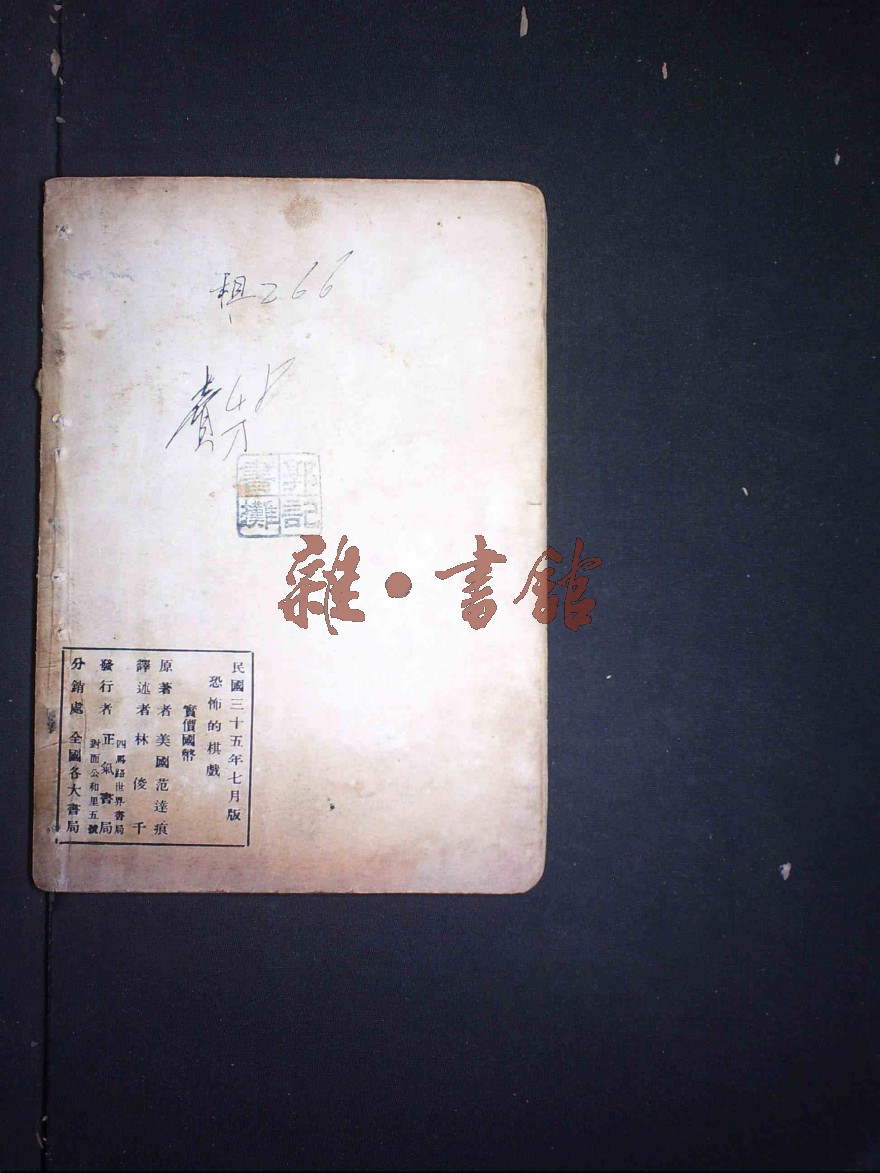 租266
賣
郭記
書攤
雜·書館
民國三十五年七月版
恐怖的棋戲
實價國幣
原著者 美國范達痕
譯述者 林俊千
發行者 正氣書局
四馬路世界書局
對面公和里五號
分銷處 全國各大書局